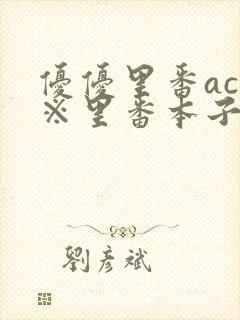 優優里番ac
※里番本子
劉彥斌